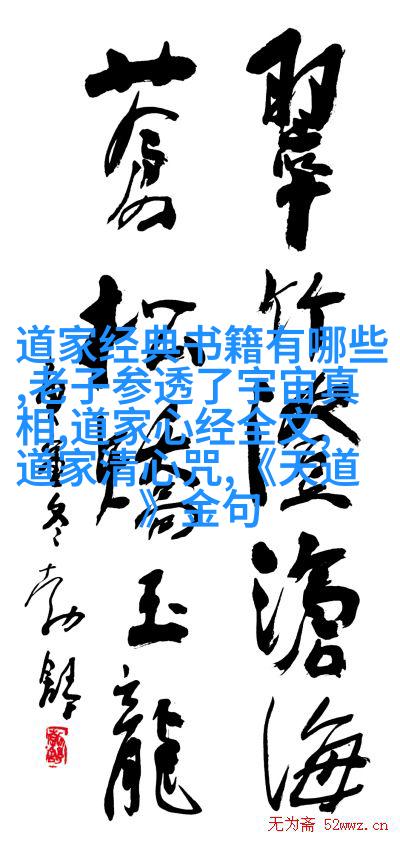 翠竹澄滄海
蒼松玉龍
冬勃舒
道家经典书籍有哪些
,老子参透了宇宙真
相,道家心经全文,
道家清心咒,《天道
》金句
无为斋 52wwz.cn